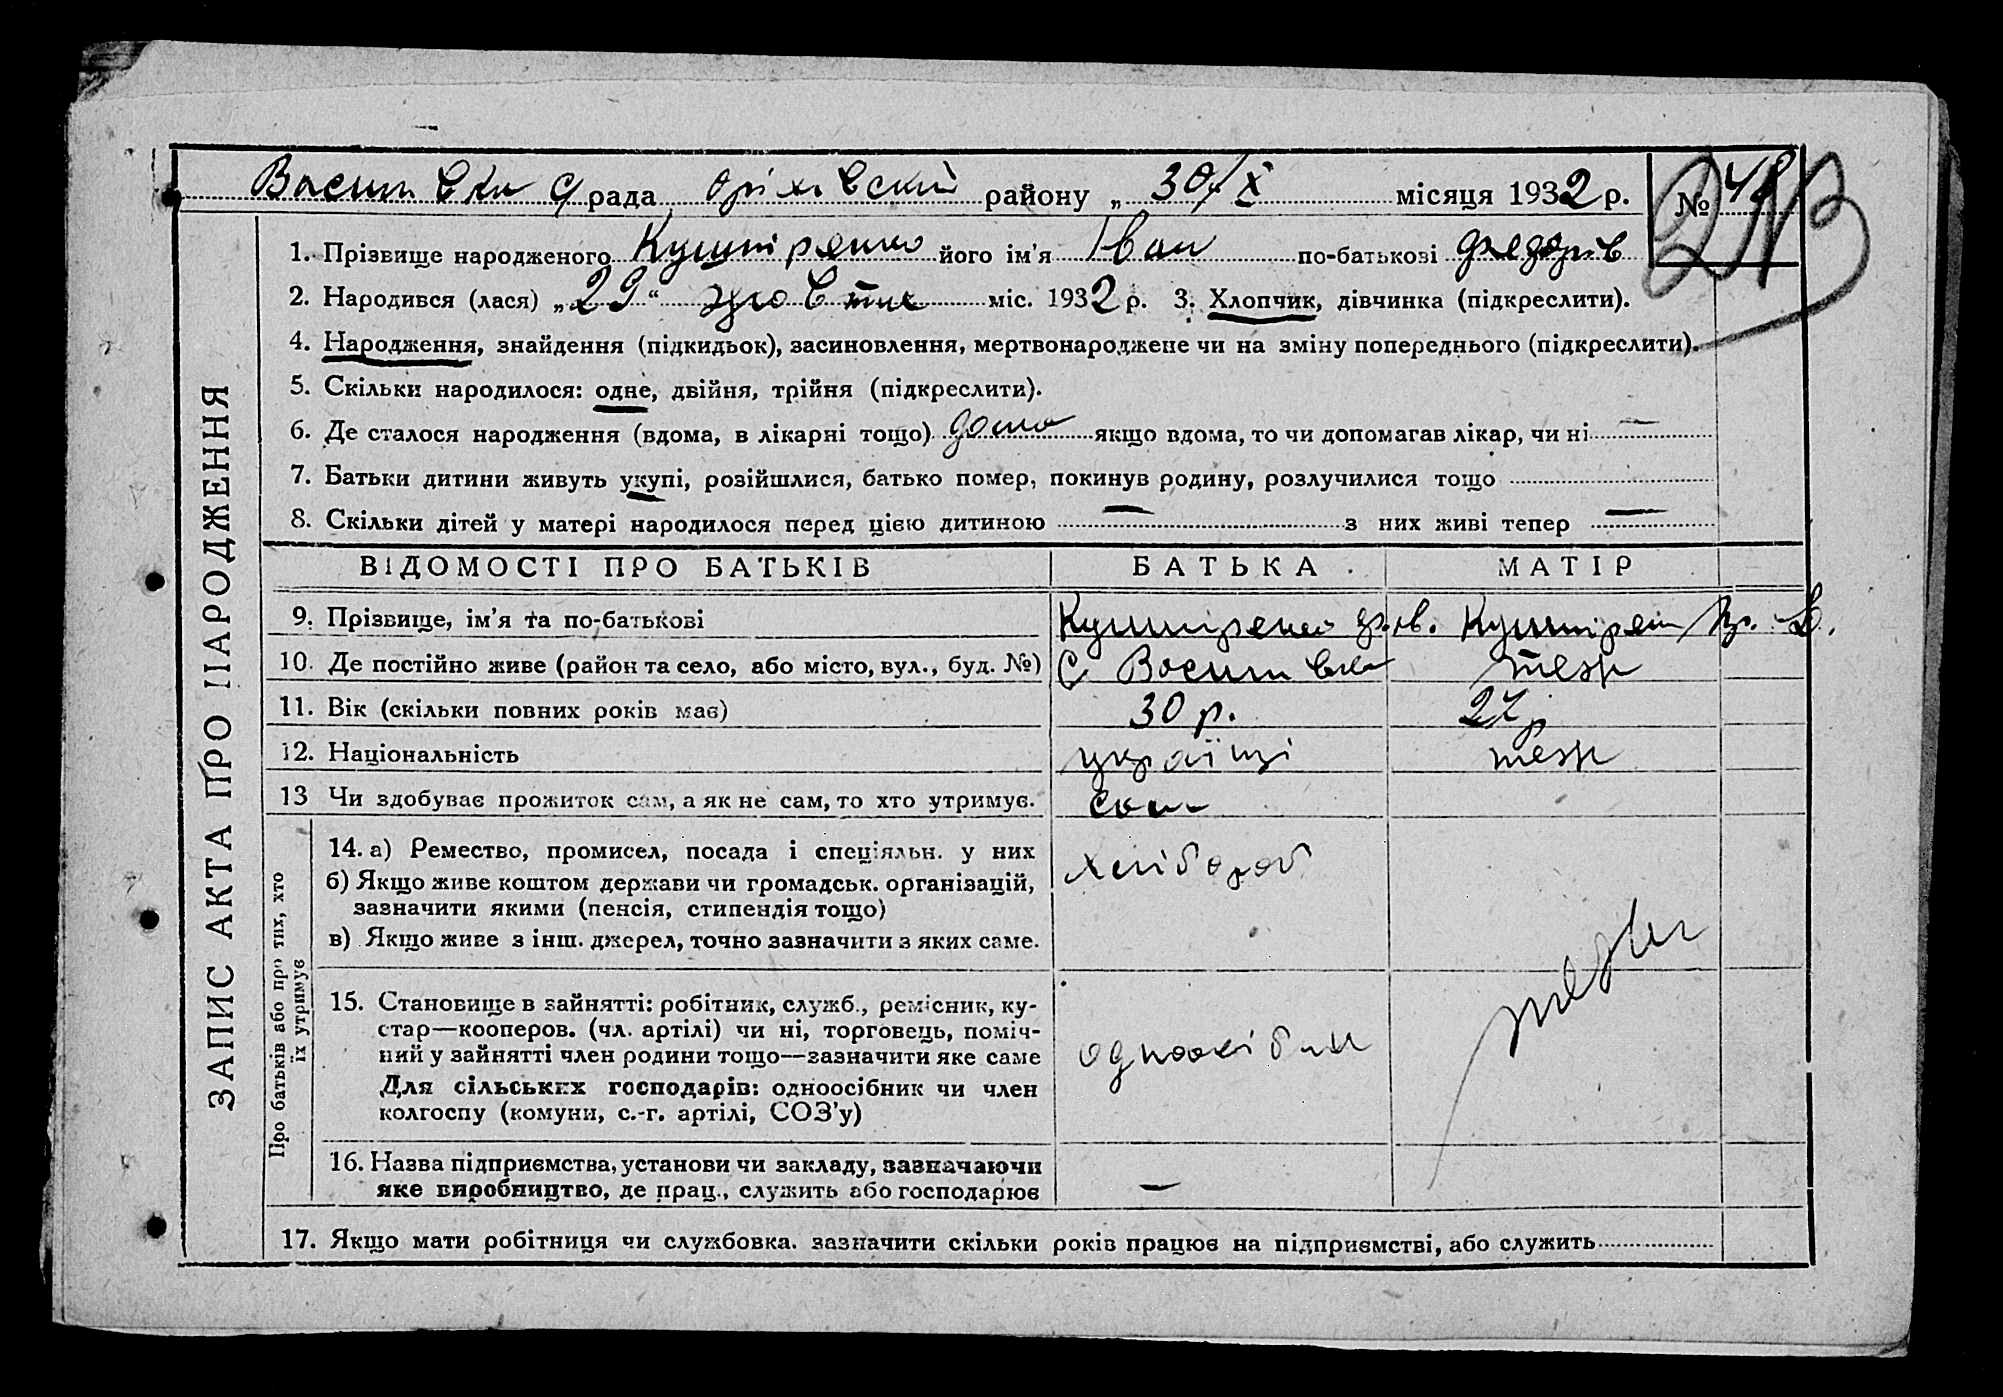 рада району „30/X місяця 1932 р. №
1. Прізвище народженого Кушніренко його ім'я Іван по-батькові Федорів
2. Народився (лася) „29“ жовтня міс. 1932 р. 3. Хлопчик, дівчинка (підкреслити).
4. Народження, знайдення (підкидьок), засиновлення, мертвонароджене чи на зміну попереднього (підкреслити).
5. Скільки народилося: одне, двійня, трійня (підкреслити).
6. Де сталося народження (вдома, в лікарні тощо) дома якщо вдома, то чи допомагав лікар, чи ні —
7. Батьки дитини живуть укупі, розійшлися, батько помер, покинув родину, розлучилися тощо
8. Скільки дітей у матері народилося перед цією дитиною — з них живі тепер —
ЗАПИС АКТА ПРО НАРОДЖЕННЯ
ВІДОМОСТІ ПРО БАТЬКІВ БАТЬКА МАТІР
9. Прізвище, ім'я та по-батькові Кушніренко
10. Де постійно живе (район та село, або місто, вул., буд. №) с теж
11. Вік (скільки повних років має) 30 р. 27 р
12. Національність українці теж
13 Чи здобуває прожиток сам, а як не сам, то хто утримує. сам
Про батьків або про тих, хто
їх утримує
14. а) Ремество, промисел, посада і спеціяльн. у них хлібороб
б) Якщо живе коштом держави чи громадськ. організацій,
зазначити якими (пенсія, стипендія тощо)
в) Якщо живе з інш. джерел, точно зазначити з яких саме.
15. Становище в зайнятті: робітник, служб., ремісник, ку-
стар—кооперов. (чл. артілі) чи ні, торговець, поміч-
ний у зайнятті член родини тощо—зазначити яке саме одноосібник
Для сільських господарів: одноосібник чи член
колгоспу (комуни, с.-г. артілі, СОЗ'у)
16. Назва підприємства, установи чи закладу, зазначаючи
яке виробництво, де прац., служить або господарює —
17. Якщо мати робітниця чи службовка. зазначити скільки років працює на підприємстві, або служить